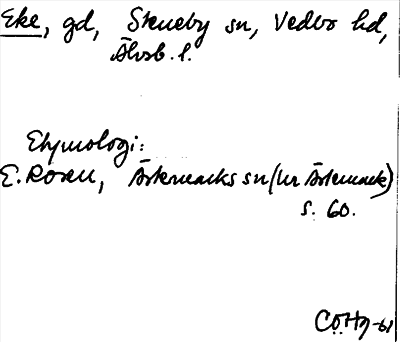 Eke, gd, Steneby sn, Vedbo hd,
Älvsb. l.
Etymologi:
E. Rosell, Ärtemarks sn (ur Ärtemark)
s. 60.
CÖHg-61